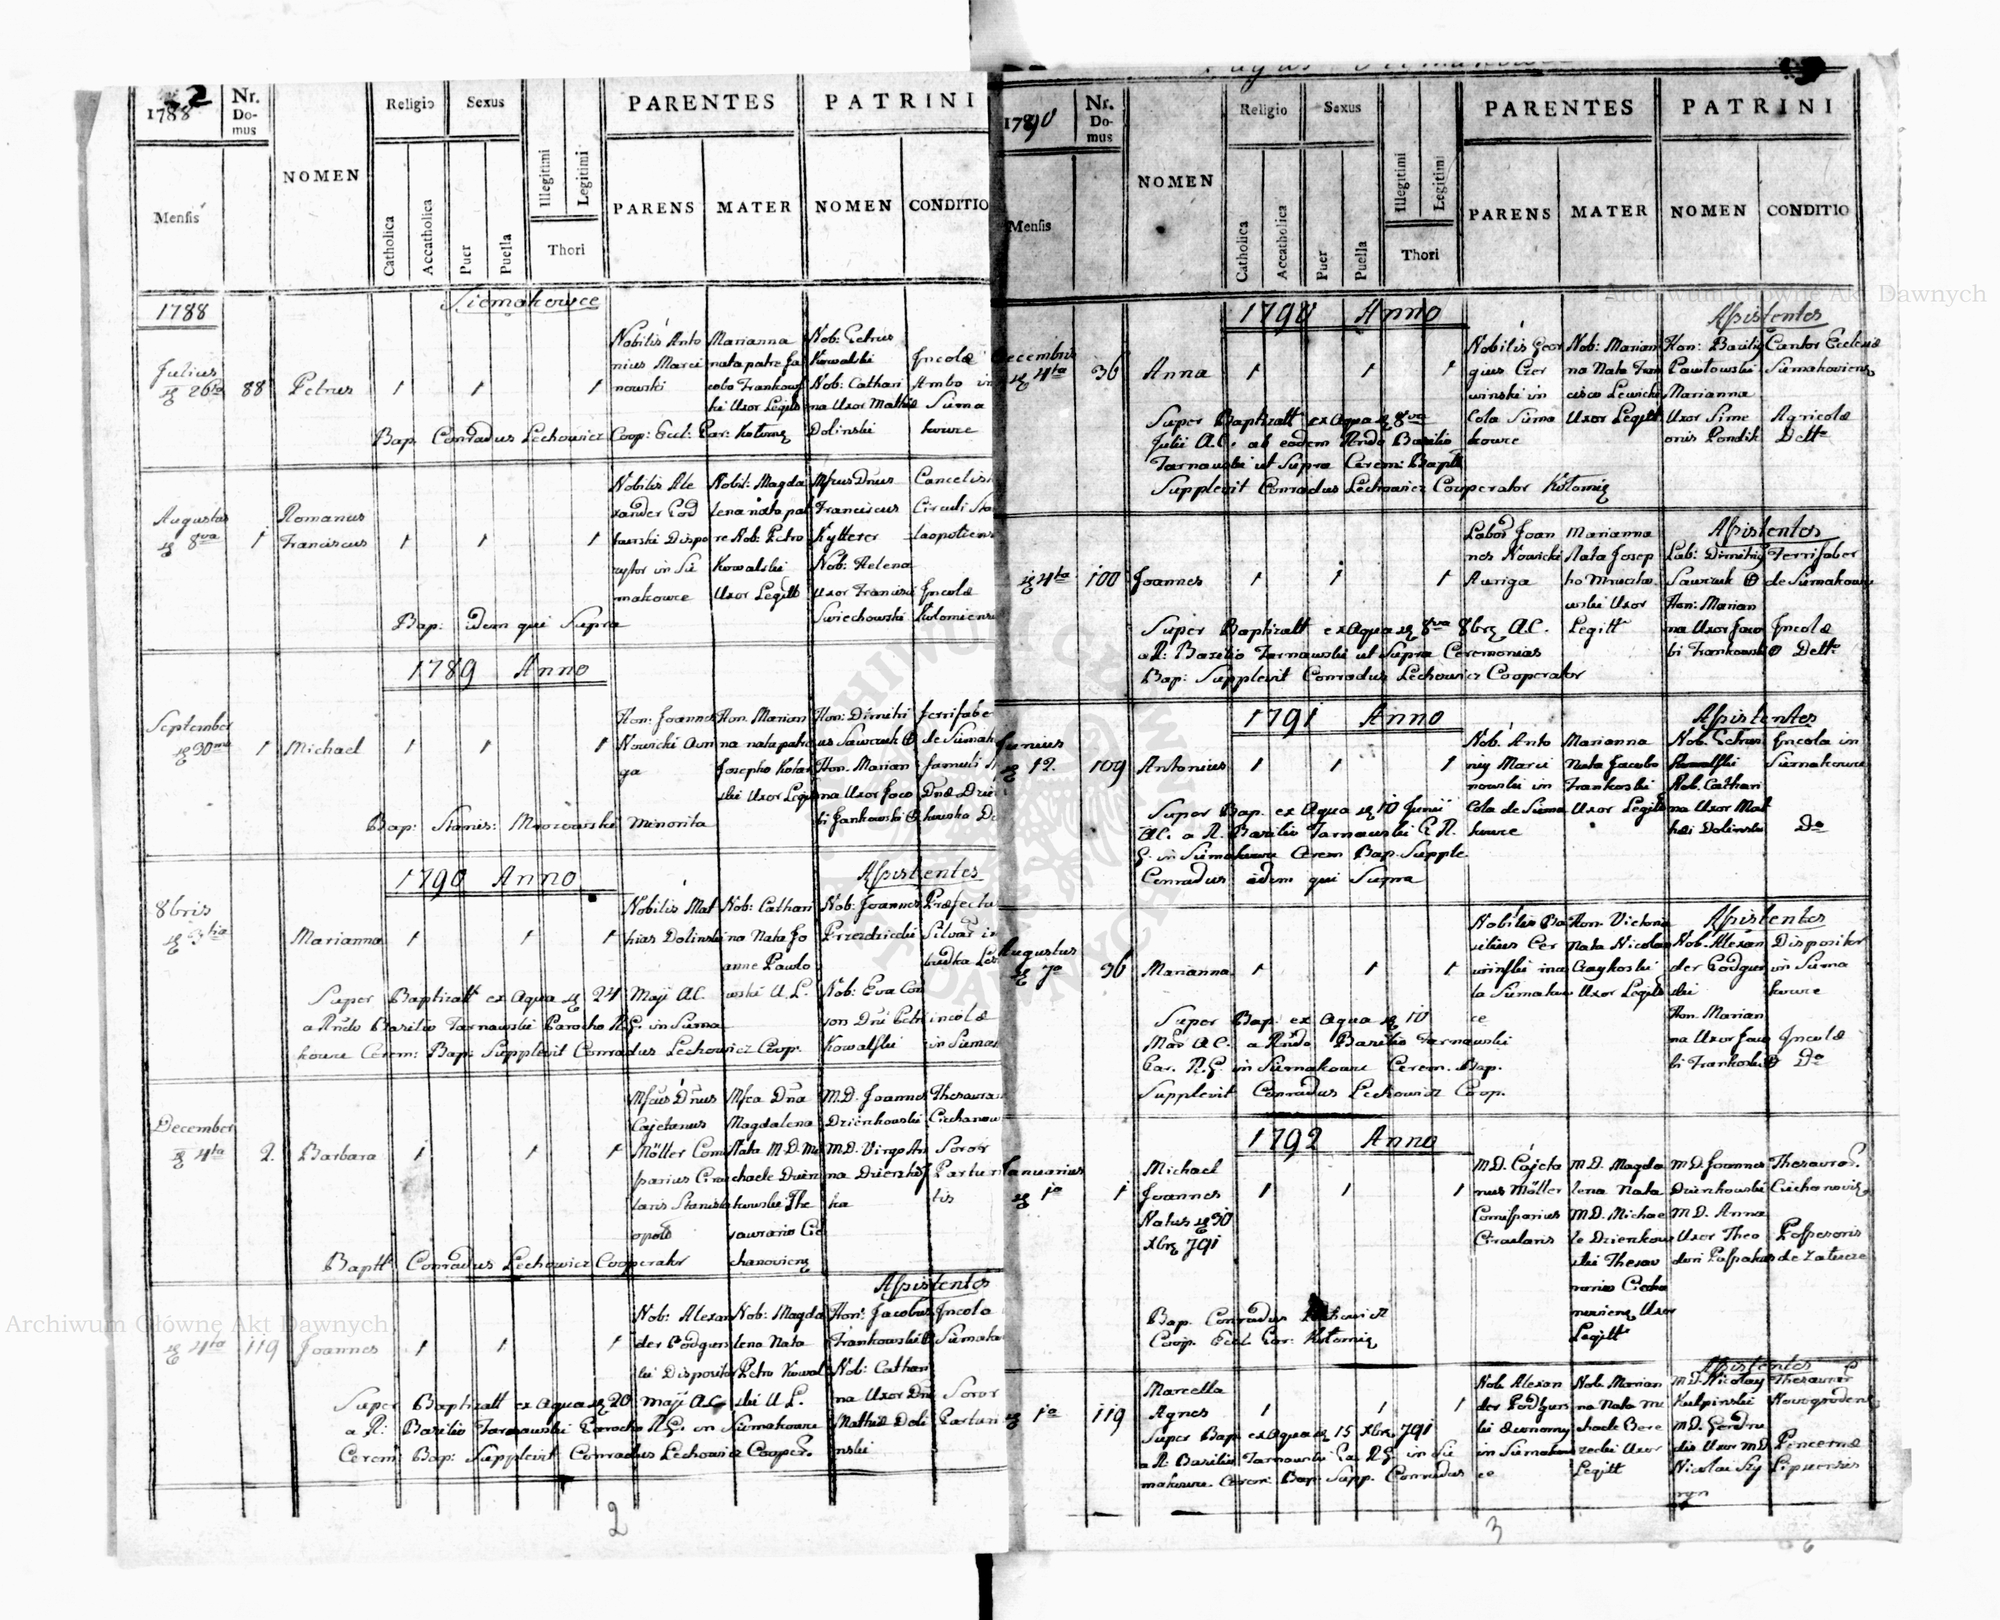 2
1788
Nr. Do-mus
Religio
Sexus
PARENTES
PATRINI
NOMEN
Mensis
Catholica
Accatholica
Puer
Puella
Illegitimi
Legitimi
Thori
PARENS
MATER
NOMEN
CONDITIO
1788
Siemakowce
Julius
26ta
88
Petrus
1 1 1
Nobilis Anto
nius Marci
nowski
Marianna
nata patre Ja
cobo Frankows
ki Uxor Legit
Nob: Petrus
Kowalski
Nob: Cathari
na Uxor Mathiæ
Dolinski
Incolæ
Ambo in
Siema
kowce
Bap. Conradus Lechowicz Coop: Eccl: Par: Kolom
Augustus
8va
1
Romanus
Franciscus
1 1 1
Nobilis Ale
xander Pod
Dispo
zytor in Sie
makowce
Nobil: Magda
lena nata pat
re Nob: Petro
Kowalski
Uxor Legitt
Dnus
Franciscus
Kytterer
Nob: Helena
Uxor Francisci
Swiechowski
Circuli Sta
Incolæ
Bap: idem qui Supra
1789 Anno
September
30ma
1
Michael
1 1 1
Hon: Joannes
Nowicki Auri
ga
Hon. Marian
na nata patre
Josepho
Uxor Legit
Hon: Dimitri
us Sawczuk
Hon. Marian
na Uxor Jaco
bi Jankowski
de Siemak
famuli
Bap: Stanis: Mrozowski Minorita
1790 Anno
Assistentes
8bris
3tia
Marianna
1 1 1
Nobilis Mat
hias Dolinski
Nob: Cathari
na Nata Jo
anne Pawlo
wski U. L.
Nob: Joannes
Nob: Eva Con
sors Dni Petri
Kowalski
Præfectus
Silvar in
incolæ
in Siemak
Super Baptizatt ex Aqua 24 Maji A.C.
a Rndo Basilio Tarnawski Parocho R.G. in Siema
kowce Cerem: Bap: Supplevit Conradus Lechowicz Coop.
December
4ta
2.
Barbara
1 1 1
Dnus
Cajetanus
Möller Com
issarius Circu
laris Stanisla
opol
Dna
Magdalena
Nata M.D. Mi
chaele Dzien
kowski The
saurario Cie
chanovien
M.D. Joannes
Dzienkowski
M.D. Virgo An
na Dzienkows
ka
Thesaurar
Ciechanow
Soror
Parturi
tis
Baptt Conradus Lechowicz Cooperator
Assistentes
4ta
119
Joannes
1 1 1
Nob: Alexan
der Podgurs
ki Dispositor
Nob: Magda
lena Nata
Petro Kowal
ski U L.
Hon: Jacobus
Frankowski
Nob: Cathari
na Uxor Dni
Mathiæ Doli
nski
Incola
Siemako
Soror
Parturi
Super Baptizatt ex Aqua 20 Maji A.C.
a R: Basilio Tarnawski Parocho R.G. in Siemakowce
Cerem: Bap: Supplevit Conradus Lechowicz Cooper.
2
Pagus Siemakowce
3
1790
Nr. Do-mus
Religio
Sexus
PARENTES
PATRINI
NOMEN
Mensis
Catholica
Accatholica
Puer
Puella
Illegitimi
Legitimi
Thori
PARENS
MATER
NOMEN
CONDITIO
1790 Anno
Assistentes
Decembris
4ta
36
Anna
1 1 1
Nobilis Geor
gius Czer
winski in
cola Siema
kowce
Nob: Marian
na Nata Fran
cisco Lewicki
Uxor Legitt
Hon: Basilius
Pawlowski
Marianna
Uxor Sime
onis Pondik
Cantor Ecclesiæ
Siemakoviens
Agricolæ
Dett
Super Baptizatt ex Aqua 8va
Julii A.C. ab eodem Rndo Basilio
Tarnawski ut Supra Cerem: Baptt
Supplevit Conradus Lechowicz Cooperator Kolomi
Assistentes
4ta
100
Joannes
1 1 1
Labor Joan
nes Nowicki
Auriga
Marianna
Nata Josep
ho
Uxor
Legitt
Lab: Dimitrius
Sawczuk
Hon: Marian
na Uxor Jaco
bi Frankowski
Ferrifaber
de Siemakowce
Incolæ
Dett
Super Baptizatt ex Aqua 8va 8br A.C.
a R: Basilio Tarnawski ut Supra Ceremonias
Bap: Supplevit Conradus Lechowicz Cooperator
1791 Anno
Assistentes
Junius
12.
109
Antonius
1 1 1
Nob. Anto
nius Marci
nowski in
cola de Siema
kowce
Marianna
Nata Jacobo
Frankoski
Uxor Legitt
Nob. Petrus
Kowalski
Nob. Cathari
na Uxor Mat
Dolinski
Incola in
Siemakowce
Do
Super Bap. ex Aqua 10 Junii
A.C. a R. Basilio Tarnawski C. R.
G. in Siemakowce Cerem Bap. Supple.
Conradus idem qui Supra
Assistentes
Augustus
7a
36
Marianna
1 1 1
Nobilis Ba
silius Czer
winski inco
la Siemakow
ce
Hon. Victoria
Nata Nicolao
Czaykoski
Uxor Legitt
Nob. Alexan
der Podgurs
ki
Hon. Marian
na Uxor Jaco
bi Frankoski
Dispositor
in Siema
kowce
Incolæ
Do
Super Bap. ex Aqua 10
Maÿ A.C. a Rndo Basilio Tarnawski
Par. R.G. in Siemakowce Cerem. Bap.
Supplevit Conradus Lechowicz Coop.
1792 Anno
Januarius
1a
1
Michael
Joannes
Natus 30
Xbr 791
1 1 1
M.D. Cajeta
nus Möller
Comissarius
Circularis
M.D. Magda
lena Nata
M.D. Michae
le Dzienkow
ski Thesau
rario Cie
Uxor
Legitt
M.D. Joannes
Dzienkowski
M.D. Anna
Uxor Theo
dori
Thesaurar.
Ciechanovi
Possesoris
de
Bap. Conradus Lechowicz
Coop. Eccl. Par. Kolomi
Assistentes
1a
119
Marcella
Agnes
1 1 1
Nob. Alexan
der Podgurs
ki Economy
in Siemakow
ce
Nob. Marian
na Nata Mi
chaele Bere
zecki Uxor
Legitt
M.D. Nicolay
Kulpinski
M.D. Gertru
dis Uxor M.D.
Nicolai
Thesaurar
Novogroden
Pincernæ
Super Bap. ex Aqua 15 Xbr 791
a R. Basilio Tarnawski Par R.G. in Sie
makowce. Cerem: Bap. Supp. Conradus
3
6
Archiwum Główne Akt Dawnych
Archiwum Główne Akt Dawnych
ARCHIWUM GŁÓWNE AKT DAWNYCH